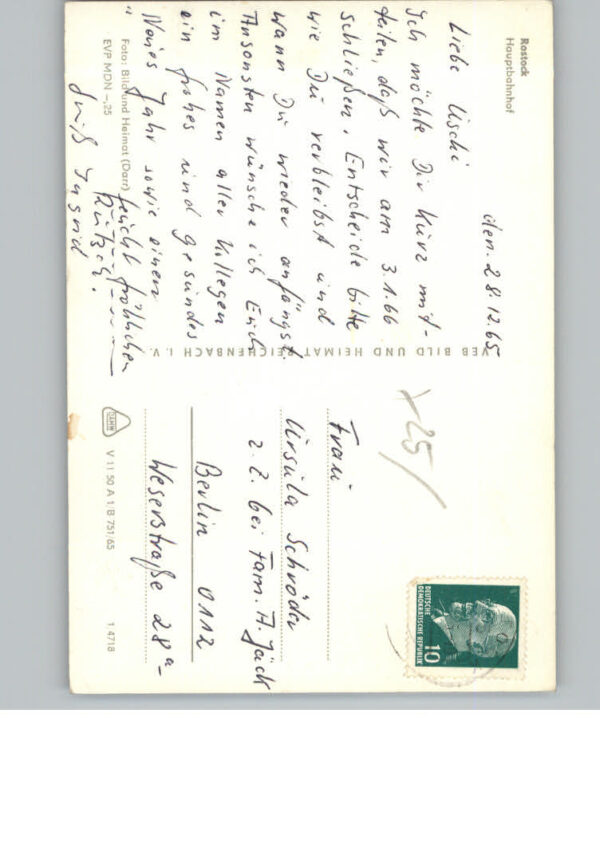 Rostock
Hauptbahnhof
den. 28.12.65
Liebe Uschi
Ich möchte Dir kurz mit-
teilen, daß wir am 3.1.66
schließen. Entscheide bitte
wie Du verbleibst und
wann Du wieder anfängst.
Ansonsten wünsche ich Euch
im Namen aller Kollegen
ein frohes und gesundes
Neues Jahr sowie einen
feucht fröhlichen
Rutsch!
Gruß Ingrid
Foto: Bild und Heimat (Darr)
EVP MDN -,25
VEB BILD UND HEIMAT REICHENBACH I. V.
x 25/
Frau
Ursula Schröder
z. Z. bei Fam. A. Jäck
Berlin 0112
Weserstraße 28a
V 11 50 A 1/B 751/65
1 4718
DEUTSCHE
DEMOKRATISCHE REPUBLIK
10